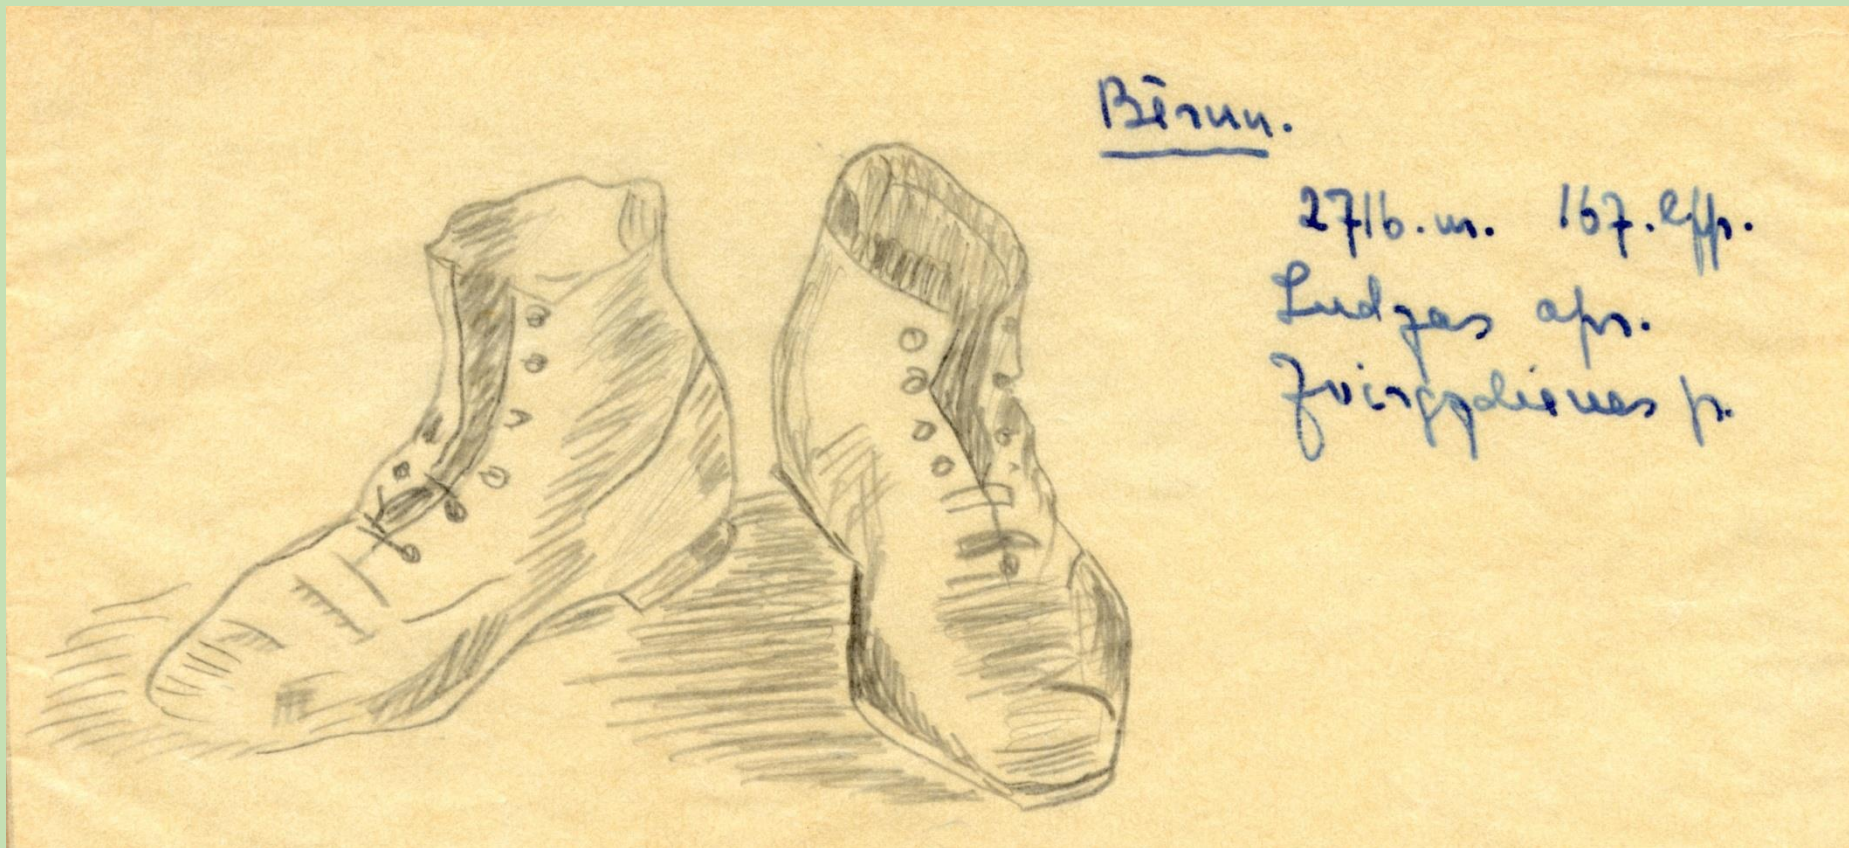 Bērnu.
2716. m. 167. lpp.
Ludzas apr.
Zvirgzdienes p.